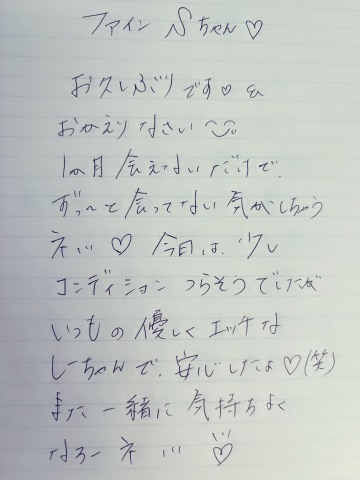 ファイン Sちゃん♡
お久しぶりです♡
おかえりなさい
1ヵ月会えないだけで、
ずっ〜と会ってない気がしちゃう
ネ!!! ♡ 今日は、少し
コンディション つらそうでしたが
いつもの優しくエッチな
しーちゃんで、安心したよ♡(笑)
また一緒に気持ちよく
なろーネ !!! ♡